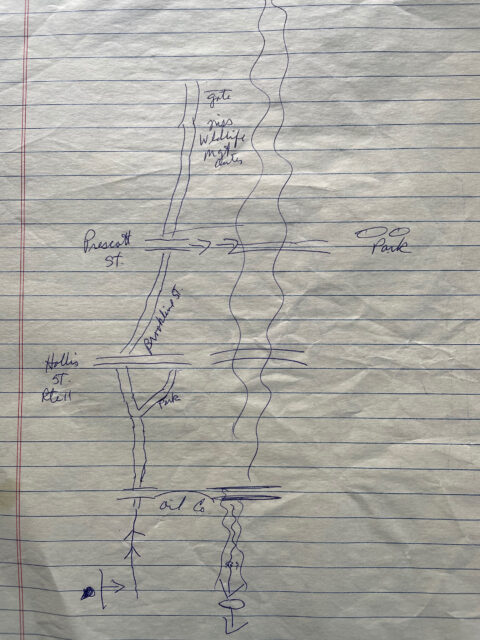 gate
Wildlife
Mgt
Gates
Prescott
St.
Park
Brookline St.
Hollis
St.
Rte 11
Park
Oil Co